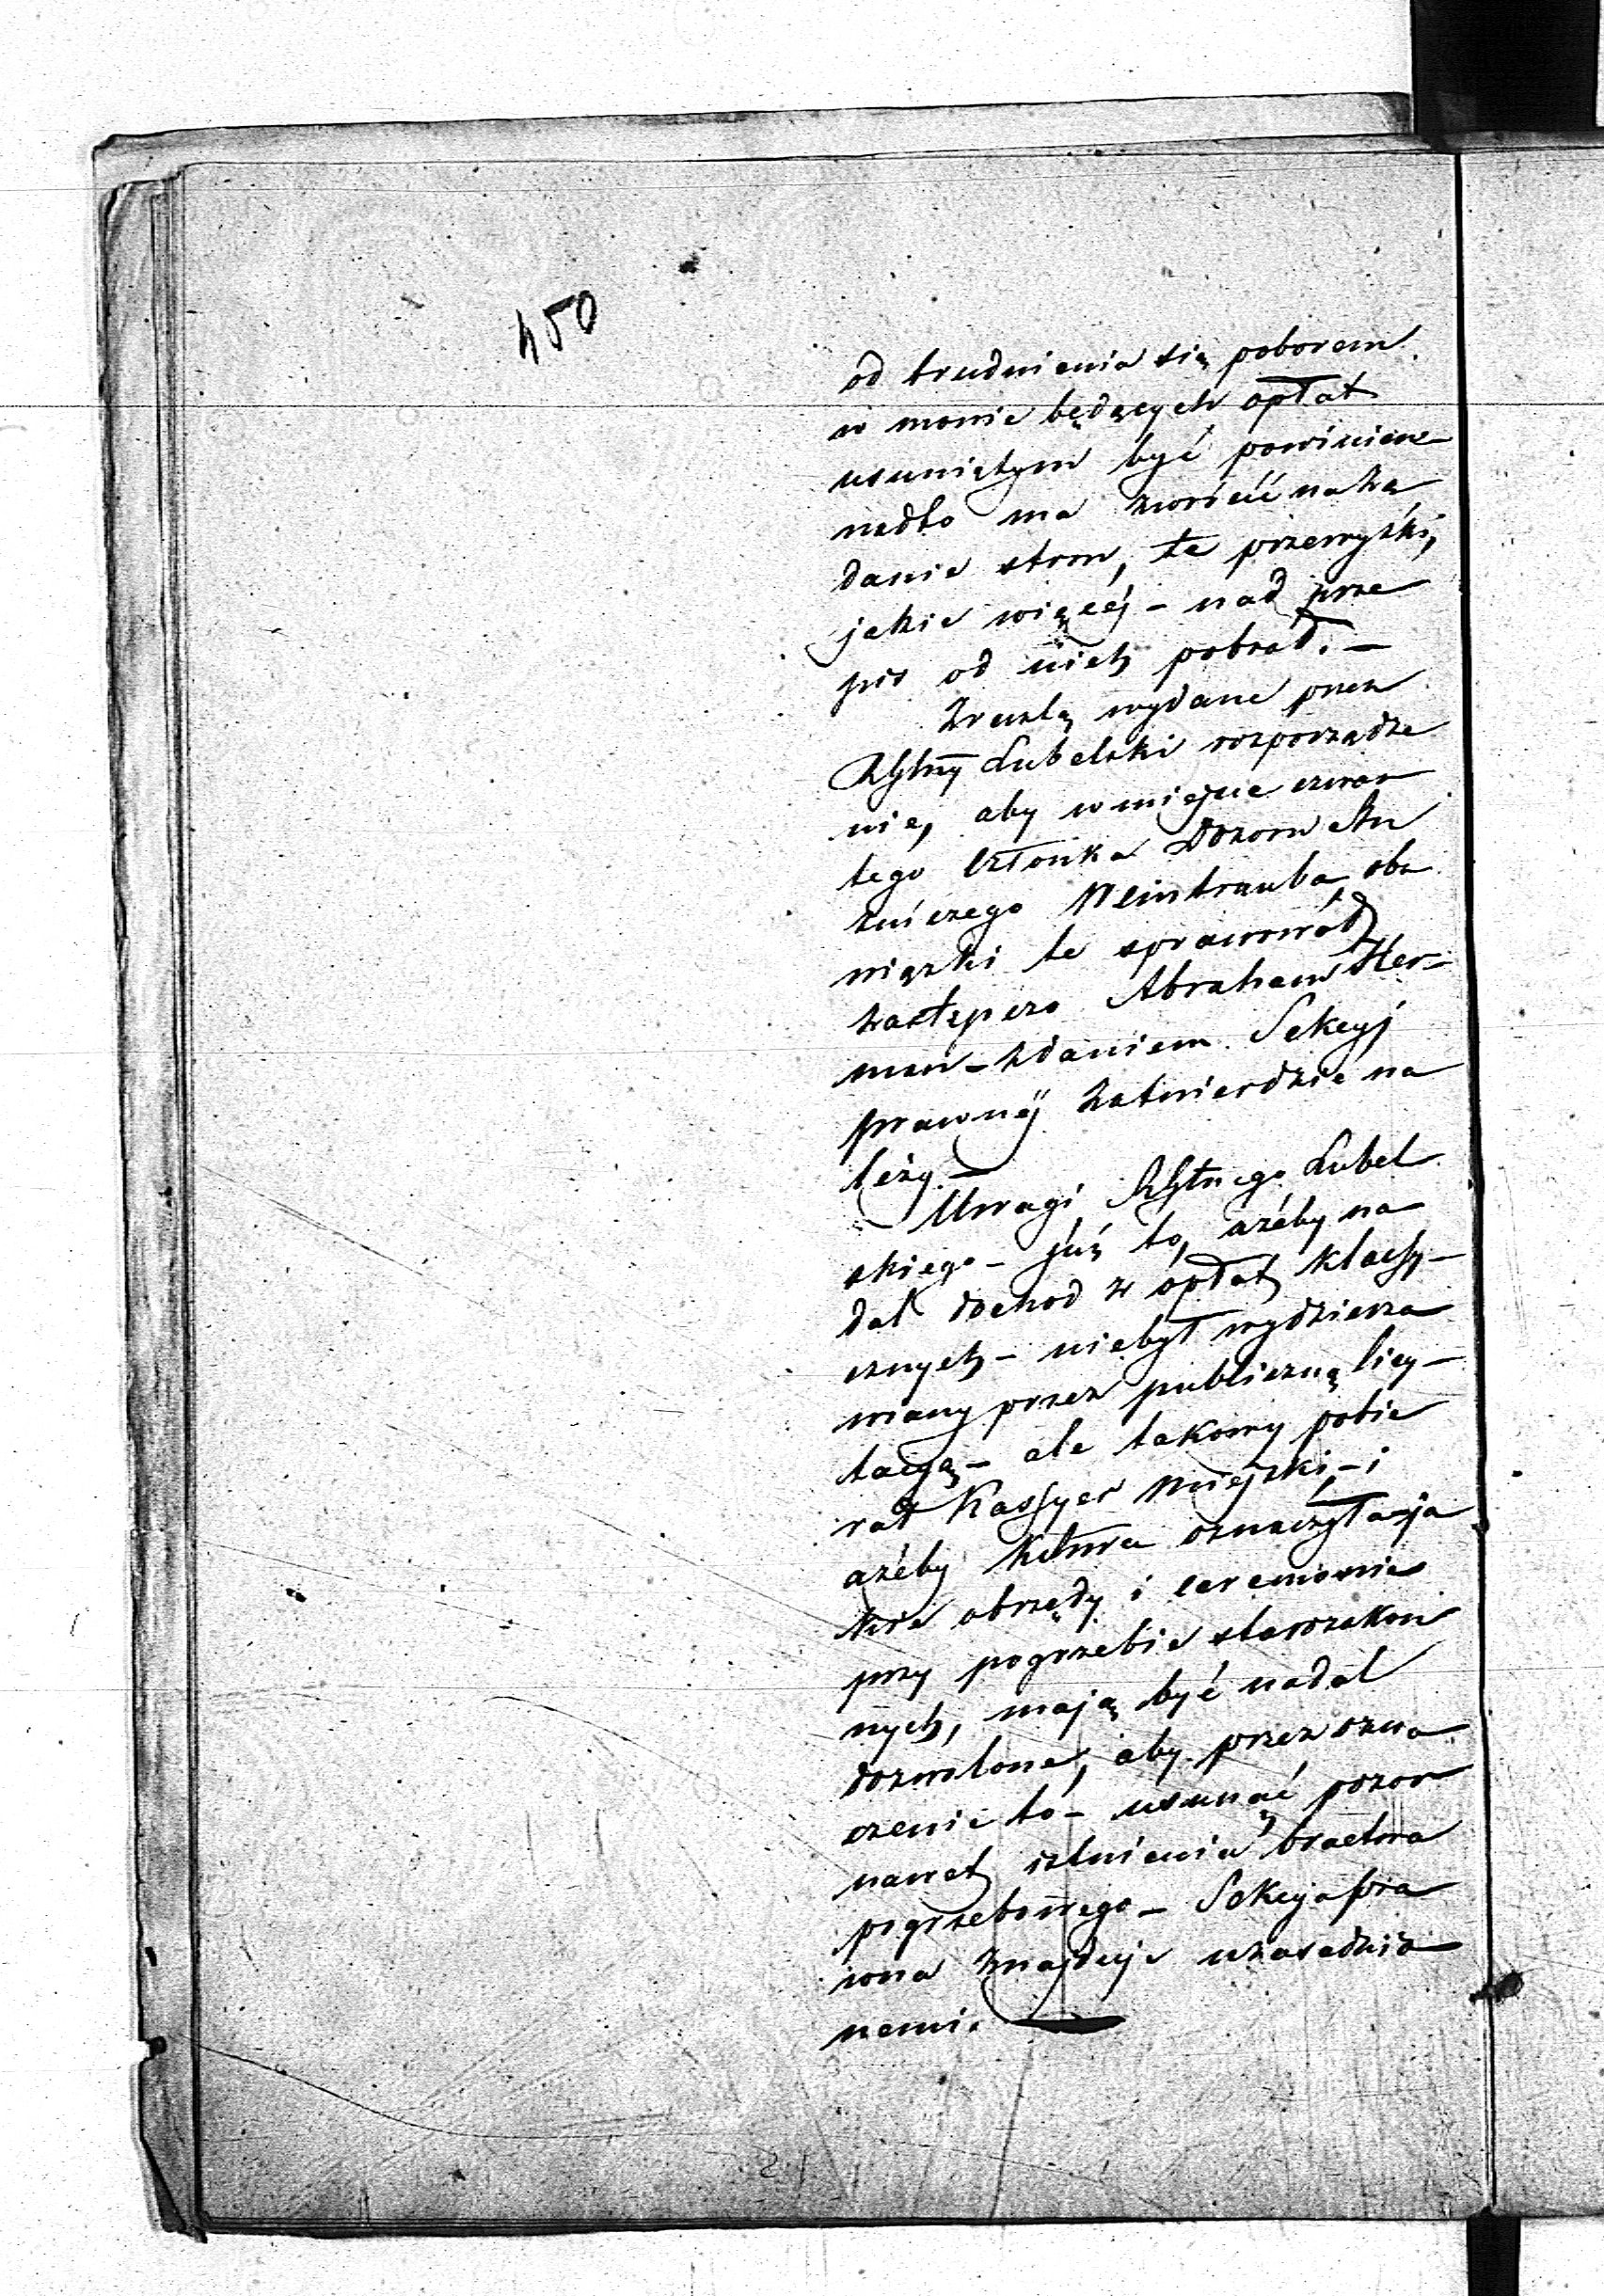 450
od trudnienia się poborem
w mowie będących opłat
usuniętym być powinien
nadto ma zwrócić na żą
danie stron, te przewyżki,
jakie więcéj – nad prze
pis od nich pobrał. –
Zresztą wydane przez
Rząd Gubny Lubelski rozporządze
nie, aby w miejsce czwar
tego członka Dozoru Bu
żniczego Weintrauba obo
wiązki te sprawował
zastępczo Abraham Her-
man – zdaniem Sekcyj
prawnéj zatwierdzić na
leży. –
Uwagi Rządu Gubnego Lubel
skiego – już to, ażeby na
dal dochod z opłat klassy-
cznych – niebył wydzierża
wiany przez publiczną licy-
tacyą – ale takowy pobie
rał Kassyer Miejski, – i
ażeby oznaczyła ja
kie obrzędy i ceremonie
przy pogrzebie starozakon
nych, mają być nadal
dozwolone, aby przez ozna
czenie to – usunąć pozor
nawet istnienia bractwa
pogrzebowego – Sekcya pra
wna znajduje uzasadnio
nemi. —